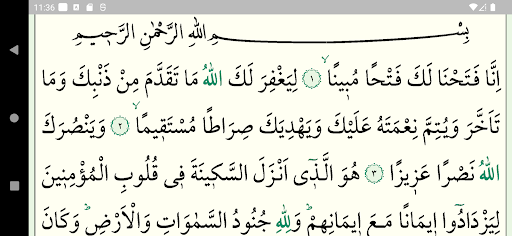 11:36
بِسْمِ اللهِ الرَّحْمٰنِ الرَّحٖيمِ
اِنَّا فَتَحْنَا لَكَ فَتْحًا مُبٖينًاۙ ﴿١﴾ لِيَغْفِرَ لَكَ اللهُ مَا تَقَدَّمَ مِنْ ذَنْبِكَ وَمَا
تَاَخَّرَ وَيُتِمَّ نِعْمَتَهُ عَلَيْكَ وَيَهْدِيَكَ صِرَاطًا مُسْتَقٖيمًاۙ ﴿٢﴾ وَيَنْصُرَكَ
اللهُ نَصْرًا عَزٖيزًا ﴿٣﴾ هُوَ الَّذٖٓى اَنْزَلَ السَّكٖينَةَ فٖى قُلُوبِ الْمُؤْمِنٖينَ
لِيَزْدَادُٓوا اٖيمَانًا مَعَ اٖيمَانِهِمْؕ وَلِلهِ جُنُودُ السَّمٰوَاتِ وَالْاَرْضِؕ وَكَانَ